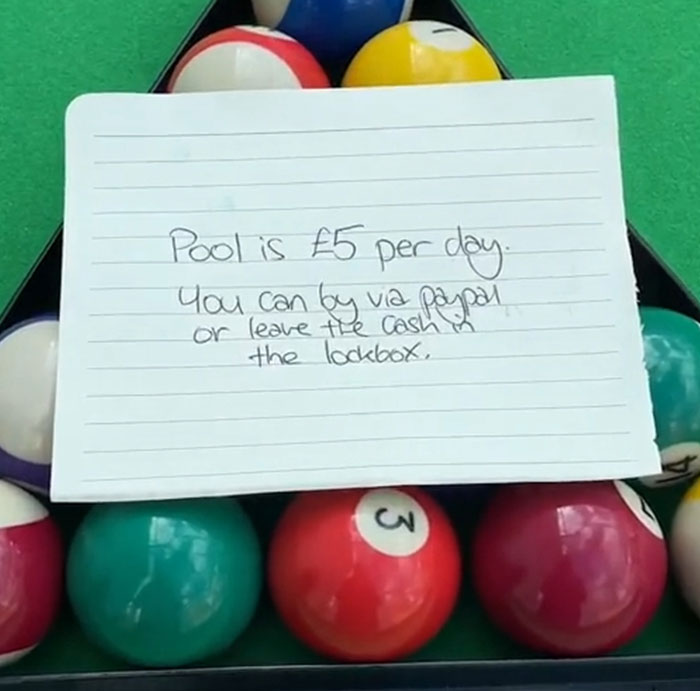 1
Pool is £5 per day.
You can by via paypal
or leave the cash in
the lockbox.
4
3